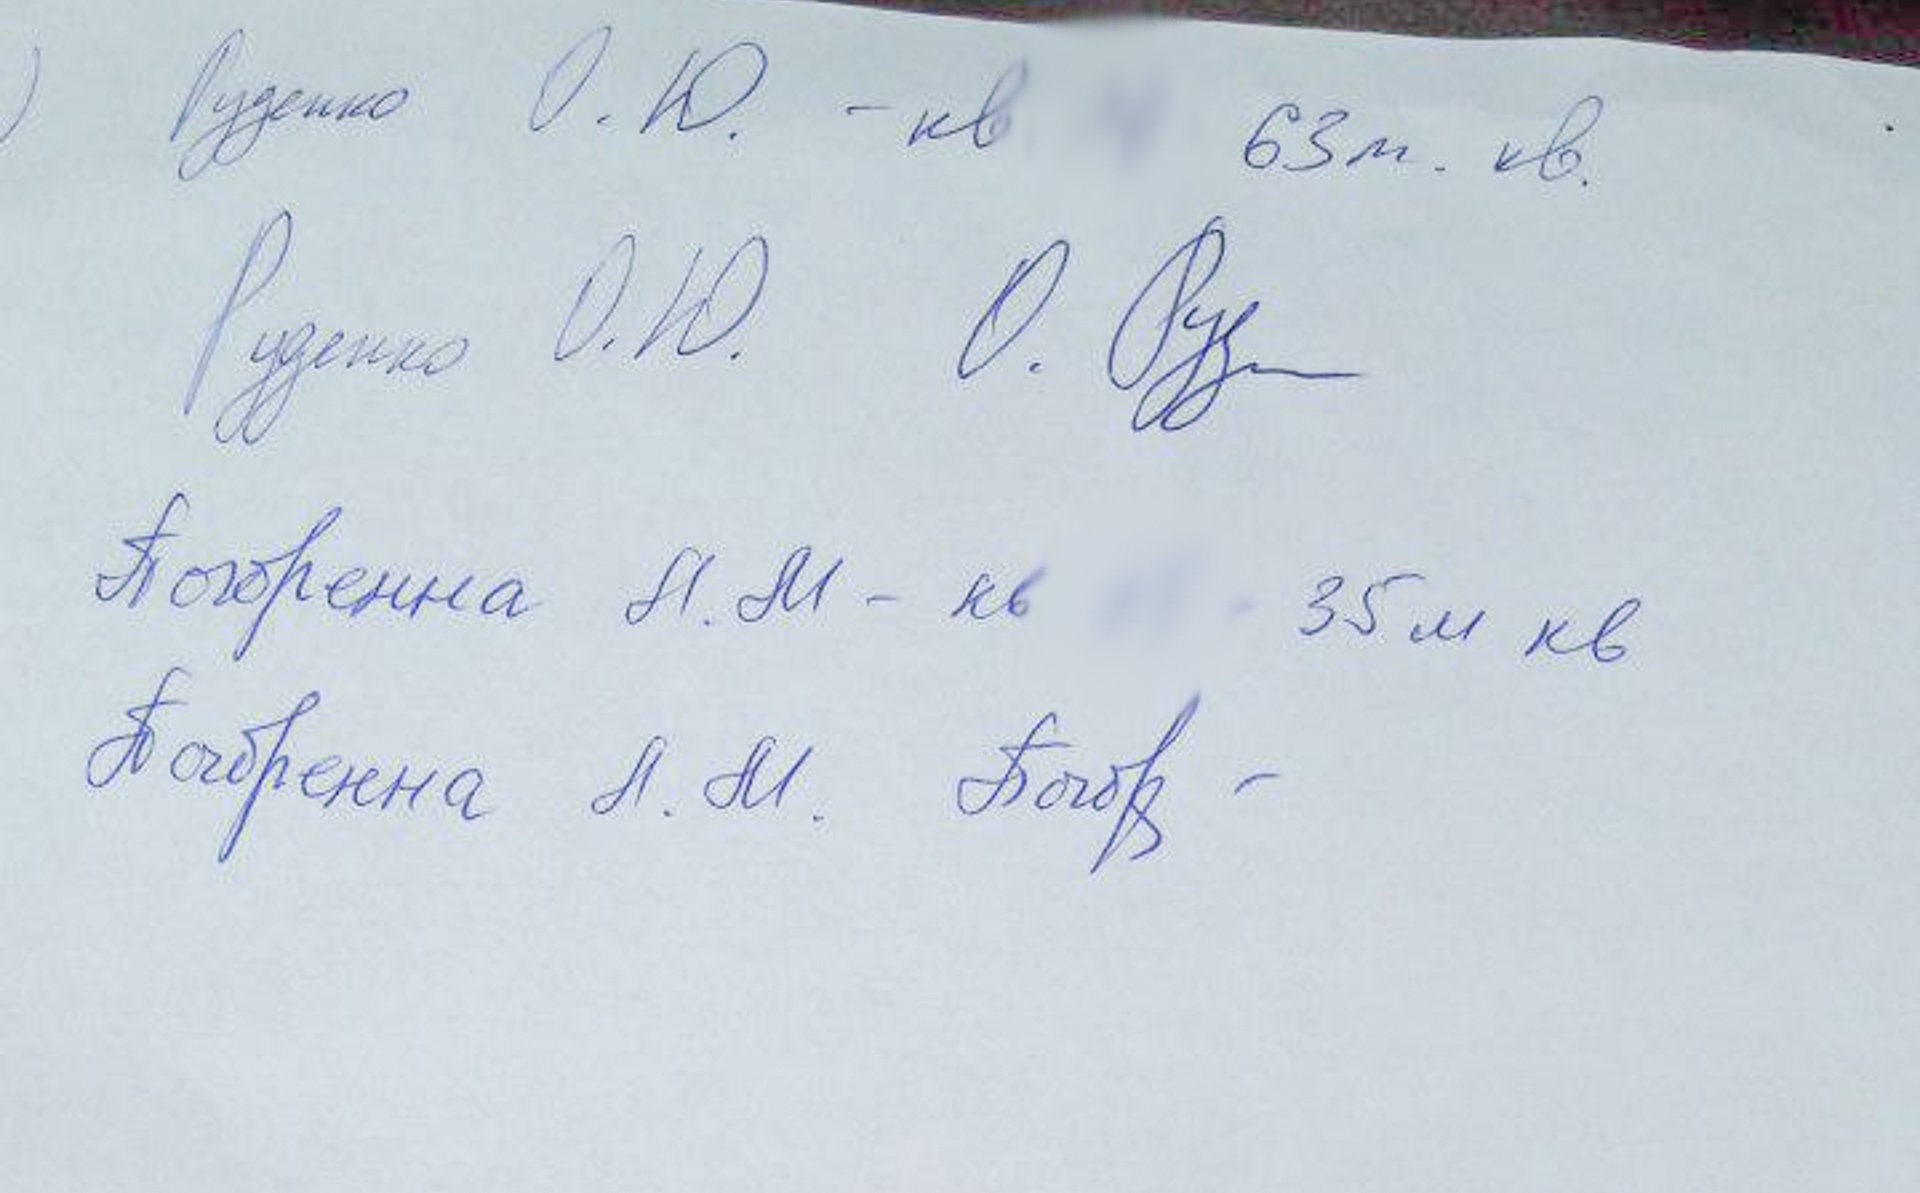 ) Руденко О. Ю. - кв 63 м. кв.
Руденко О. Ю. О. Руд
Погоренна Л. М - кв - 35 м кв
Погоренна Л. М. Погор -